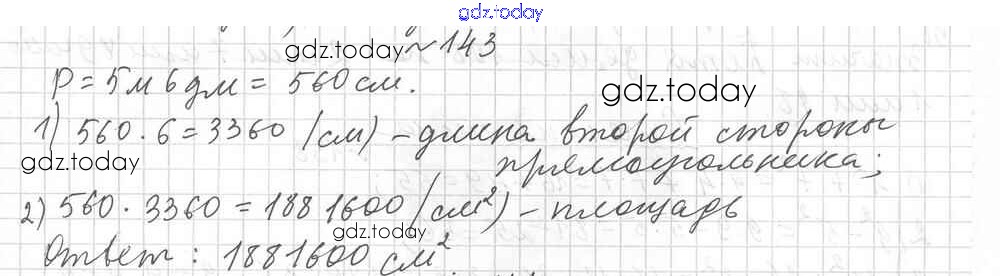 gdz.today
gdz.today ~ 143
P = 5м 6дм = 560 см.
gdz.today
1) 560 · 6 = 3360 (см) - длина второй стороны
gdz.today прямоугольника;
2) 560 · 3360 = 1881600 (см²) - площадь
gdz.today
Ответ : 1881600 см²